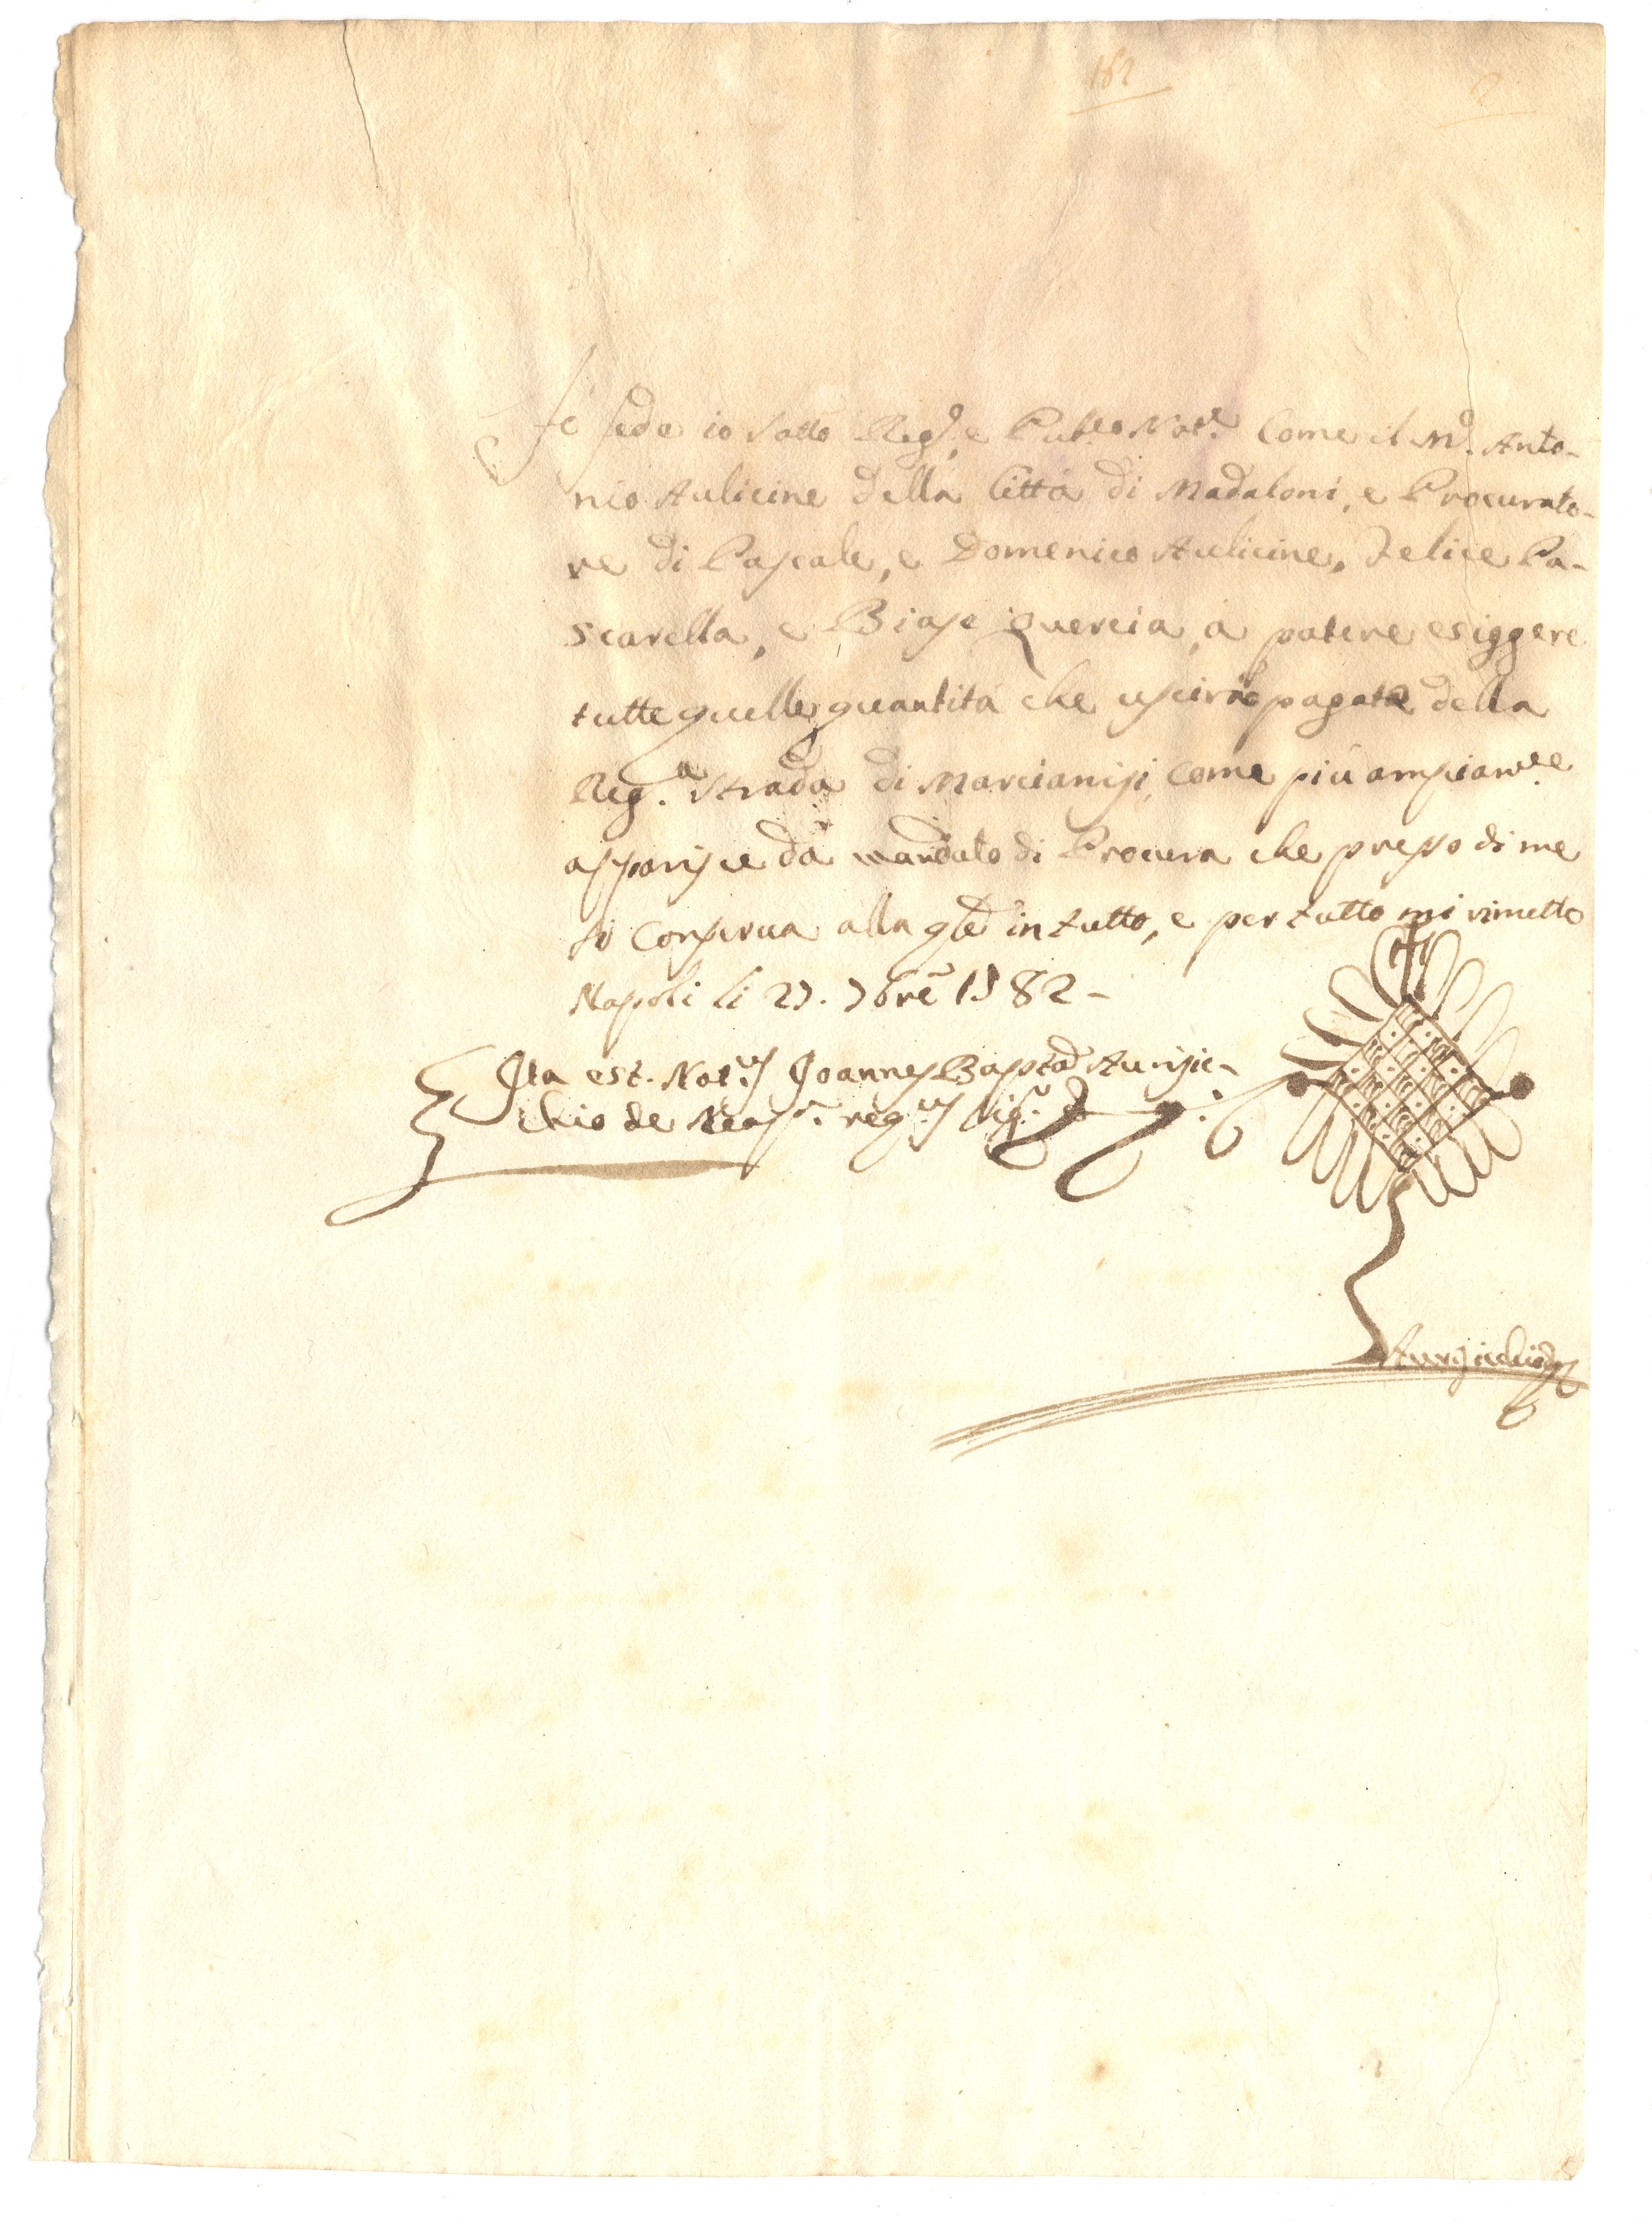 182
Fò fede io sotto Reg.º e Pub.co Not.e Come il M.º Anto-
nio Aulicine della Città di Madaloni, e Procurato-
re di Pascale, e Domenico Aulicine, Felice Pa-
scarella, e Biase Quercia, a potere esiggere
tutte quelle quantità che pagate della
Reg.a Strada di Marcianisi, Come più ampiam.te
apparisce dà mandato di Procura che presso di me
si Conserva alla qle in tutto, e per tutto mi rimetto
Napoli li 27. 7bre 1782-
Ita est. Not.us Joannes Bapta Aurisic-
chio de Neap. reg.us sig.
Aurisicchio